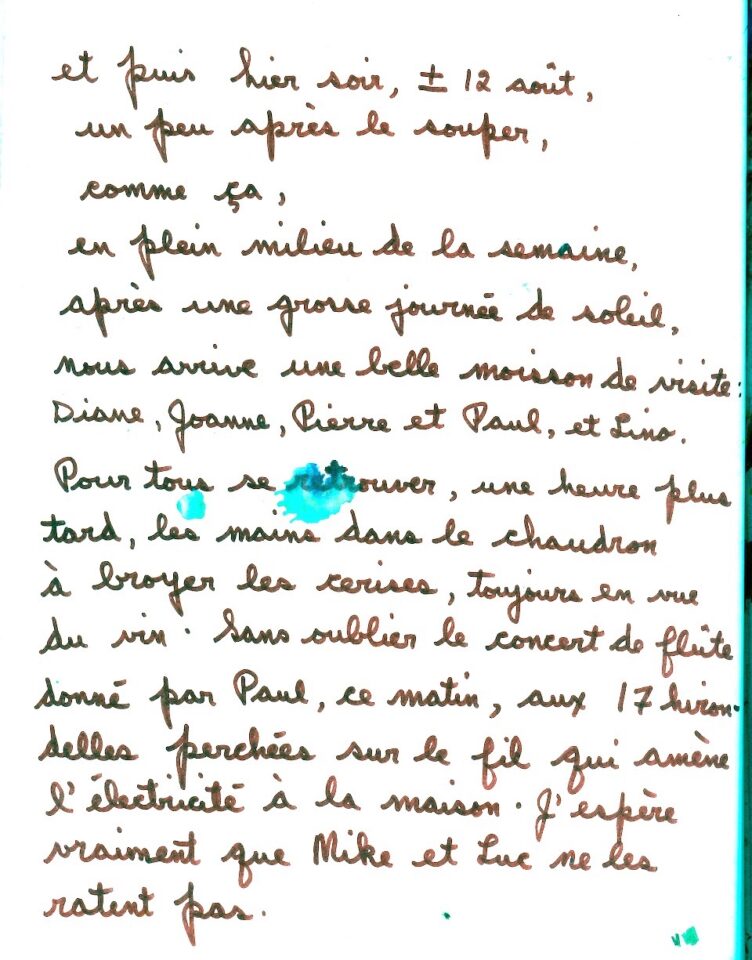 et puis hier soir, ± 12 août,
un peu après le souper,
comme ça,
en plein milieu de la semaine,
après une grosse journée de soleil,
nous arrive une belle moisson de visite:
Diane, Joanne, Pierre et Paul, et Lino.
Pour tous se retrouver, une heure plus
tard, les mains dans le chaudron
à broyer les cerises, toujours en vue
du vin. Sans oublier le concert de flûte
donné par Paul, ce matin, aux 17 hiron-
delles perchées sur le fil qui amène
l'électricité à la maison. J'espère
vraiment que Mike et Luc ne les
ratent pas.